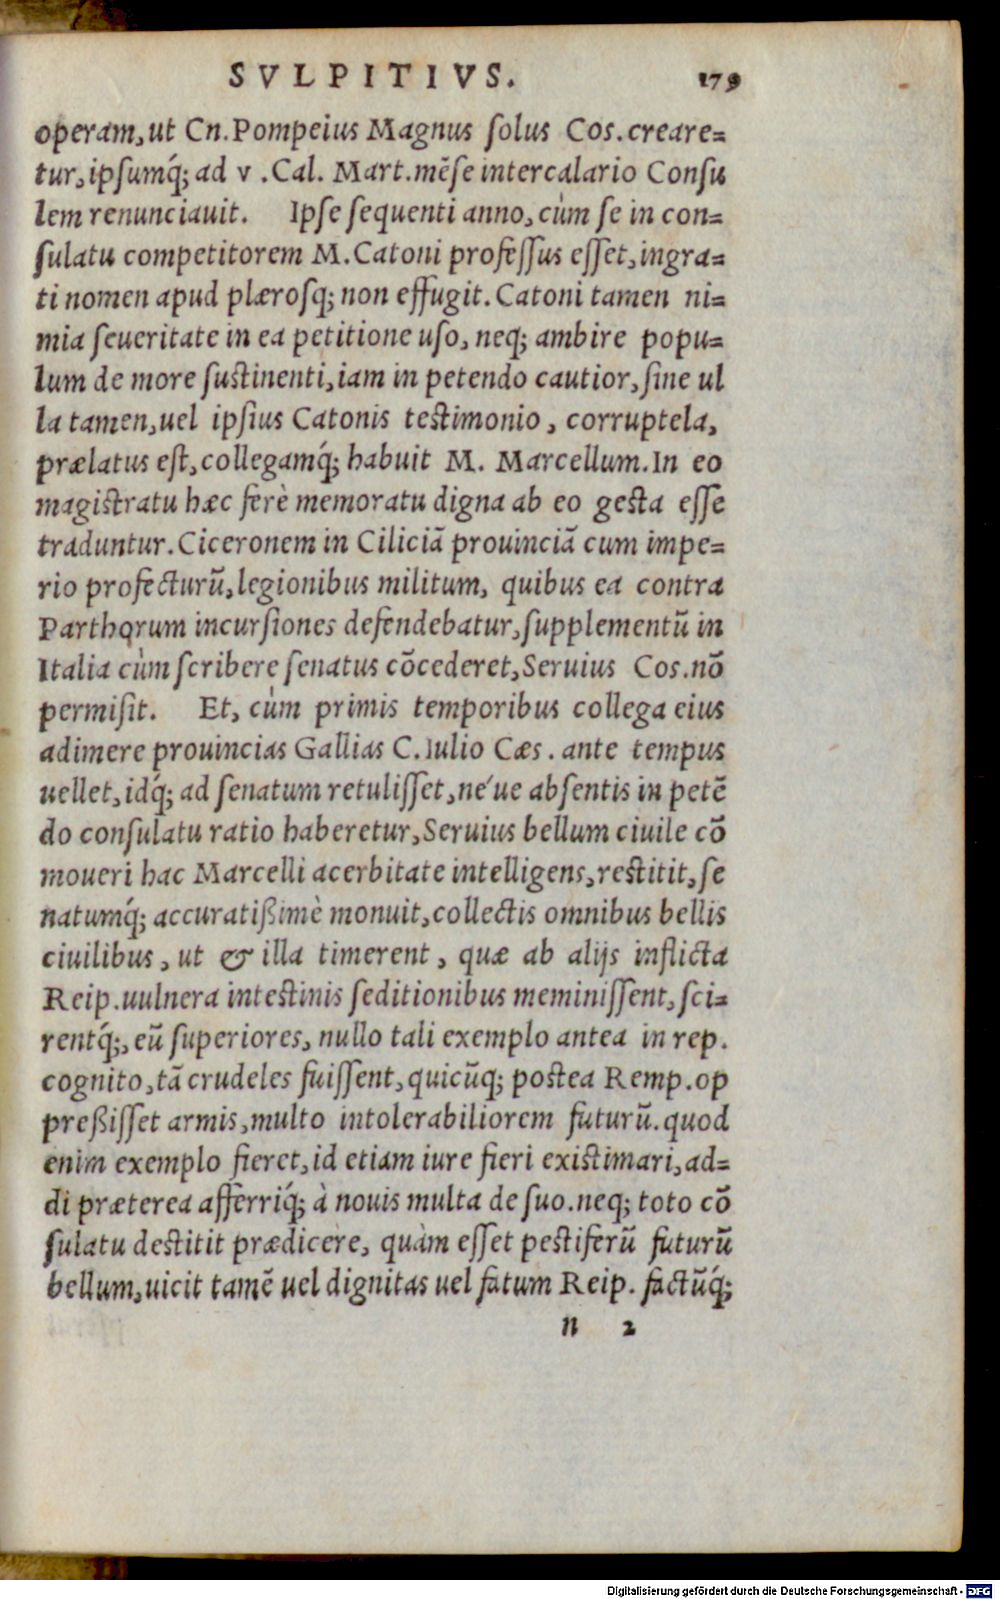 SVLPITIVS. 179
operam, ut Cn. Pompeius Magnus solus Cos. creare=
tur, ipsumq́; ad v. Cal. Mart. mēse intercalario Consu
lem renunciauit. Ipse sequenti anno, cùm se in con=
sulatu competitorem M. Catoni professus esset, ingra=
ti nomen apud plærosq; non effugit. Catoni tamen ni=
mia seueritate in ea petitione uso, neq; ambire popu=
lum de more sustinenti, iam in petendo cautior, sine ul
la tamen, uel ipsius Catonis testimonio, corruptela,
prælatus est, collegamq́; habuit M. Marcellum. In eo
magistratu hæc ferè memoratu digna ab eo gesta esse
traduntur. Ciceronem in Ciliciā prouinciā cum impe=
rio profecturū, legionibus militum, quibus ea contra
Parthorum incursiones defendebatur, supplementū in
Italia cùm scribere senatus cōcederet, Seruius Cos. nō
permisit. Et, cùm primis temporibus collega eius
adimere prouincias Gallias C. Iulio Cæs. ante tempus
uellet, idq́; ad senatum retulisset, né ue absentis in petē
do consulatu ratio haberetur, Seruius bellum ciuile cō
moueri hac Marcelli acerbitate intelligens, restitit, se
natumq́; accuratißimè monuit, collectis omnibus bellis
ciuilibus, ut & illa timerent, quæ ab alijs inflicta
Reip. uulnera intestinis seditionibus meminissent, sci=
rentq́;, eū superiores, nullo tali exemplo antea in rep.
cognito, tā crudeles fuissent, quicūq; postea Remp. op
preßisset armis, multo intolerabiliorem futurū. quod
enim exemplo fieret, id etiam iure fieri existimari, ad=
di præterea afferriq́; à nouis multa de suo. neq; toto cō
sulatu destitit prædicere, quàm esset pestiferū futurū
bellum, uicit tamē uel dignitas uel fatum Reip. factūq́;
n 2
Digitalisierung gefördert durch die Deutsche Forschungsgemeinschaft - DFG